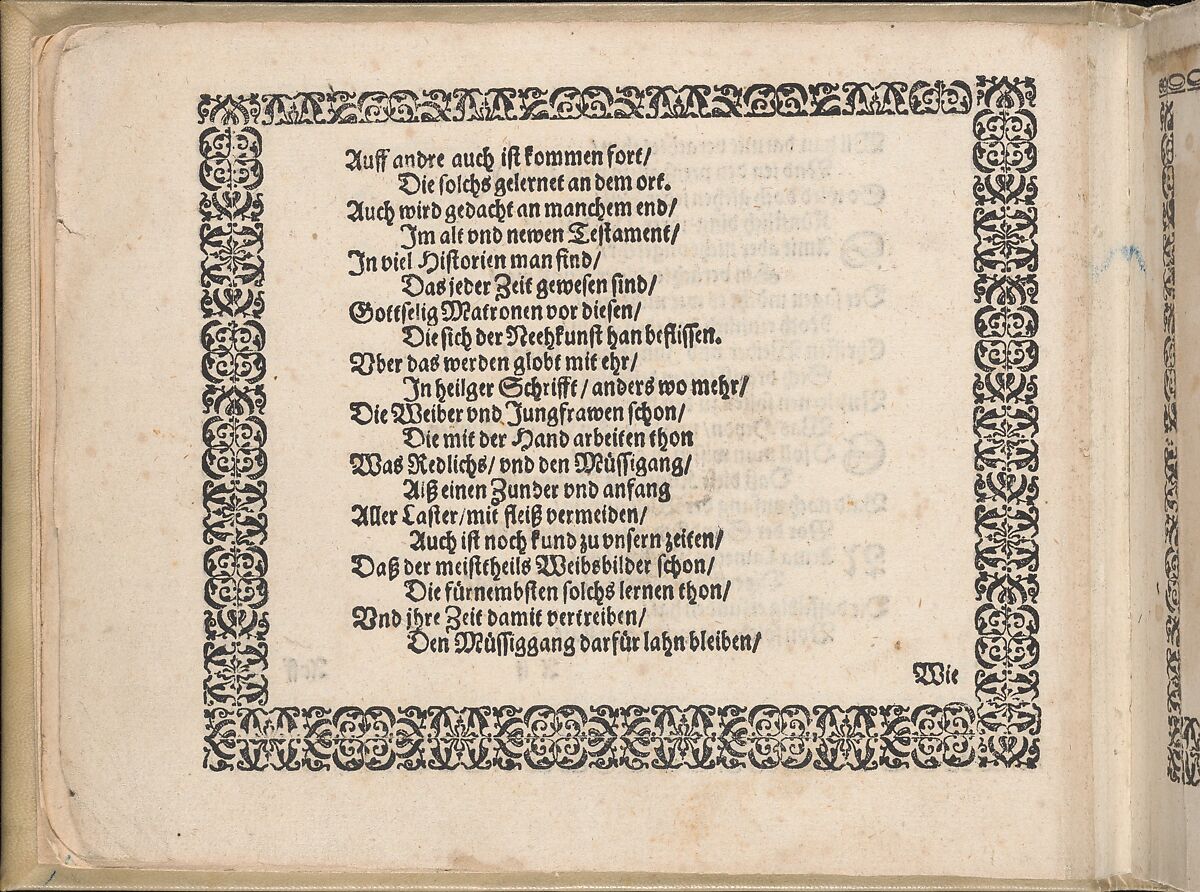 Auff andre auch ist kommen fort/
Die solchs gelernet an dem ort.
Auch wird gedacht an manchem end/
Im alt vnd newen Testament/
In viel Historien man find/
Das jeder Zeit gewesen sind/
Gottselig Matronen vor diesen/
Die sich der Neehkunst han beflissen.
Vber das werden globt mit ehr/
In heilger Schrifft/ anders wo mehr/
Die Weiber vnd Jungfrawen schon/
Die mit der Hand arbeiten thon
Was Redlichs/ vnd den Müssigang/
Alß einen Zunder vnd anfang
Aller Laster/ mit fleiß vermeiden/
Auch ist noch kund zu vnsern zeiten/
Daß der meisttheils Weibsbilder schon/
Die fürnembsten solchs lernen thon/
Vnd jhre Zeit damit vertreiben/
Den Müssiggang darfür lahn bleiben/
Wie